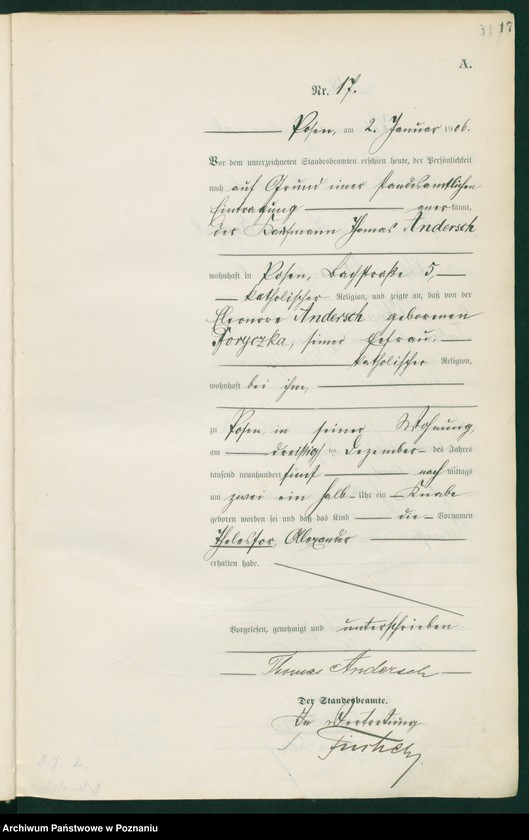 31 17
A.
Nr. 17.
Posen, am 2. Januar 1906.
Vor dem unterzeichneten Standesbeamten erschien heute, der Persönlichkeit
nach auf Grund einer standesamtlichen
Eintragung anerkannt,
der Kaufmann Thomas Andersch
wohnhaft in Posen, Bachstraße 5,
katholischer Religion, und zeigte an, daß von der
Eleonore Andersch geborenen
Foryczka, seiner Ehefrau,
katholischer Religion,
wohnhaft bei ihm,
zu Posen, in seiner Wohnung,
am dreißigsten Dezember des Jahres
tausend neunhundert fünf nach mittags
um zwei ein halb Uhr ein Knabe
geboren worden sei und daß das Kind die Vornamen
Thelesfor, Alexander
erhalten habe.
Vorgelesen, genehmigt und unterschrieben
Thomas Andersch
Der Standesbeamte.
In Vertretung
Archiwum Państwowe w Poznaniu